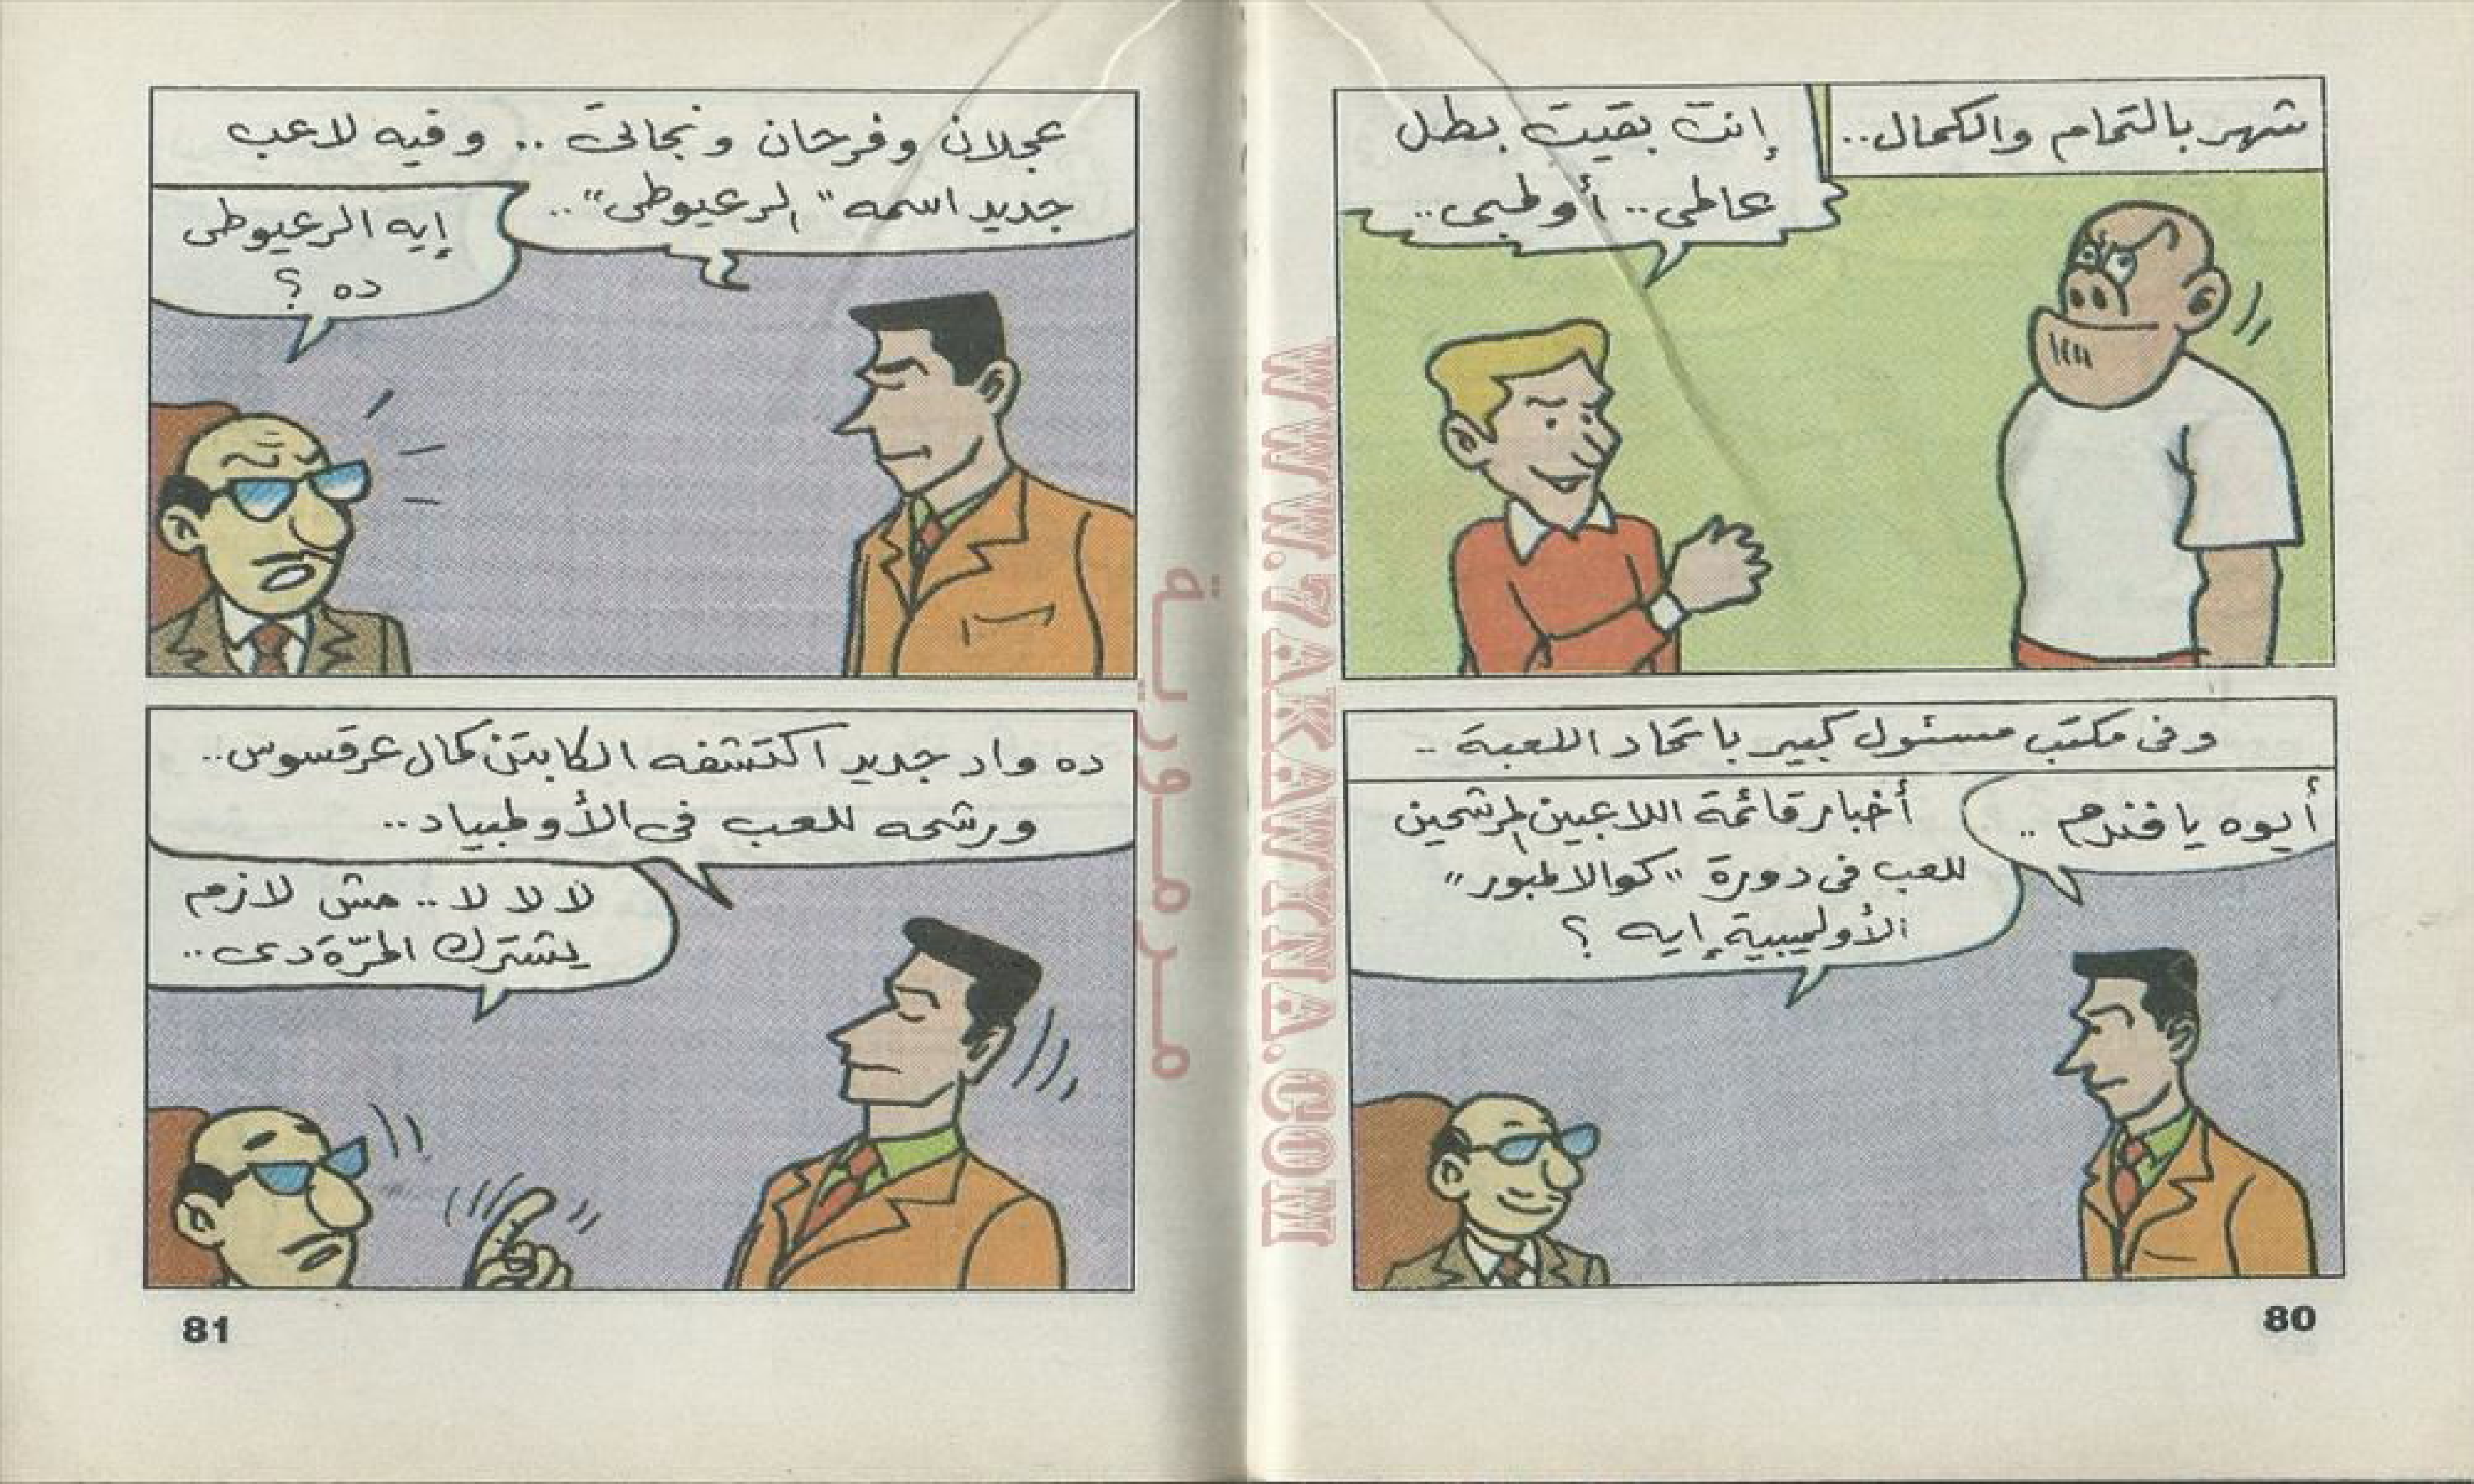 شهر بالتمام والكمال..
إنت بقيت بطل
عالمى.. أولمبى..
وفى مكتب مسئول كبير باتحاد اللعبة..
أيوه يا فندم..
أخبار قائمة اللاعبين المرشحين
للعب فى دورة "كوالالمبور"
الأوليمبية إيه ؟
80
عجلان وفرحان ونجاتى.. وفيه لاعب
جديد اسمه "الرعيوطى"..
إيه الرعيوطى
ده ؟
ده واد جديد اكتشفه الكابتن كمال عرقسوس..
ورشحه للعب فى الأولمبياد..
لا لا لا.. مش لازم
يشترك المرّة دى..
81
مرمورية
WWW.7AKAWYNA.COM